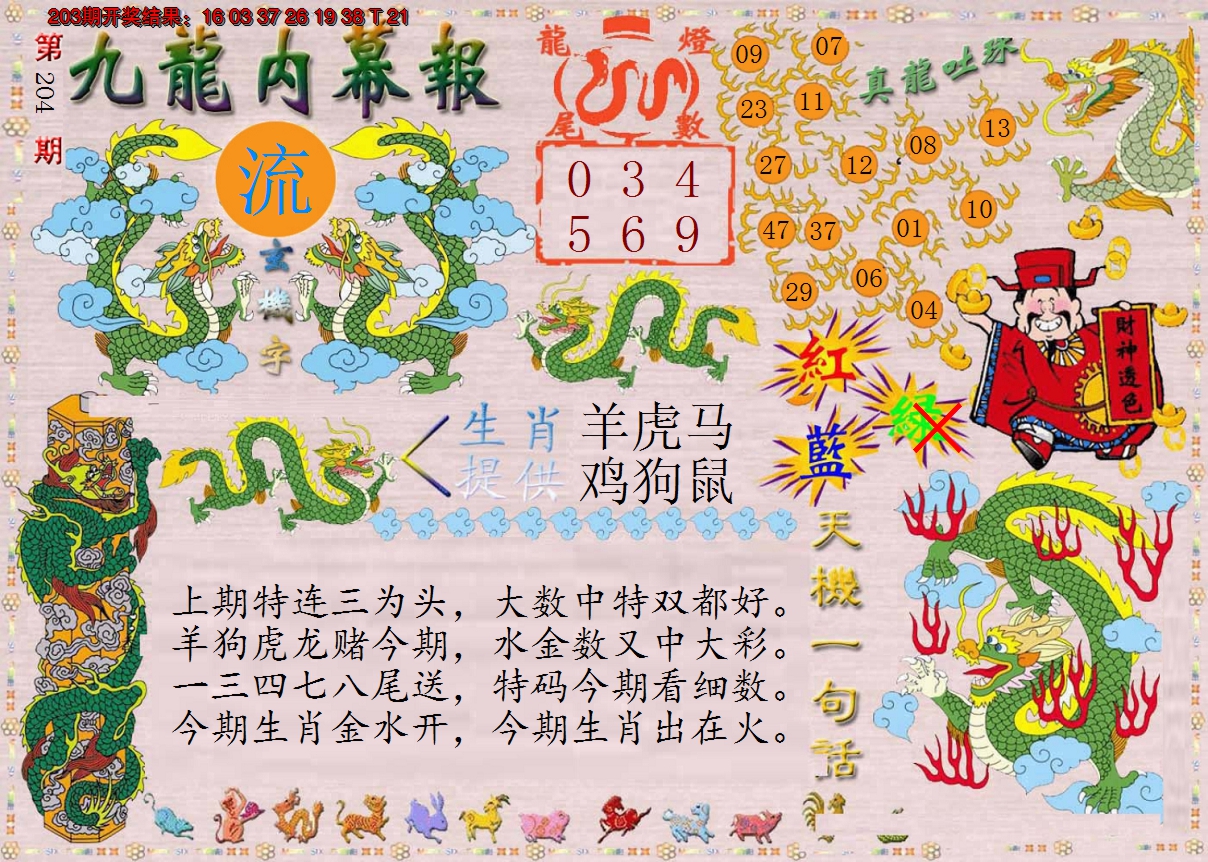 203期开奖结果：16 03 37 26 19 38 T 21
第204期
九龍内幕報
流
玄機字
龍燈尾數
0 3 4
5 6 9
真龍吐珠
09 07
23 11
27 12 08 13
47 37 01 10
29 06 04
財神透色
紅
綠
藍
生肖提供
羊虎马
鸡狗鼠
上期特连三为头，大数中特双都好。
羊狗虎龙赌今期，水金数又中大彩。
一三四七八尾送，特码今期看细数。
今期生肖金水开，今期生肖出在火。
天機一句话